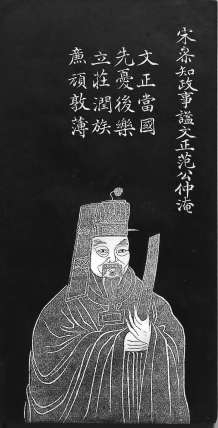 宋参知政事諡文正范公仲淹
文正當國
先憂後樂
立莊潤族
廉頑敦薄